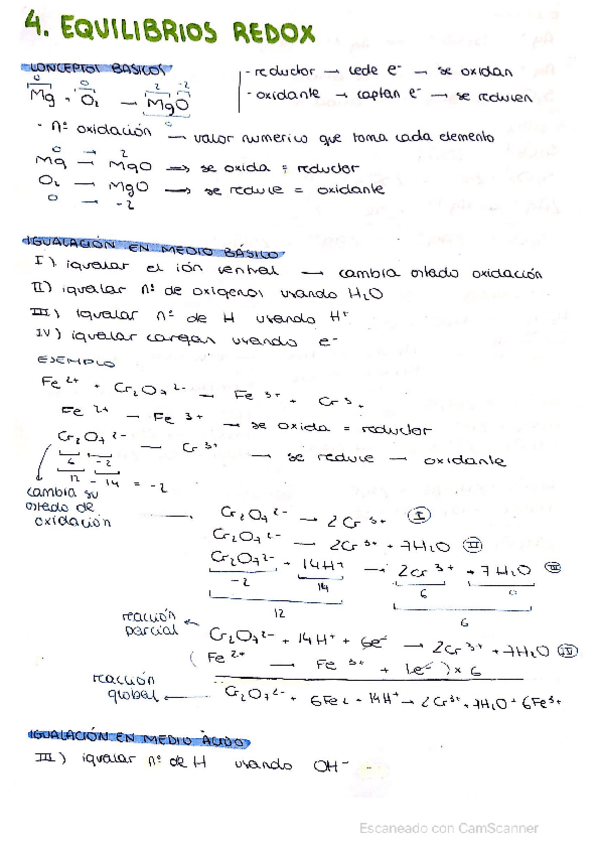 4. EQUILIBRIOS REDOX
CONCEPTOS BASICOS
- reductor → cede e⁻ → se oxidan
- oxidante → captan e⁻ → se reducen
0 0 2 -2
Mg + O₂ → MgO
- nº oxidación → valor numerico que toma cada elemento
0 → 2
Mg → MgO → se oxida = reductor
O₂ → MgO → se reduce = oxidante
0 → -2
IGUALACIÓN EN MEDIO BÁSICO
I) igualar el ión central → cambia estado oxidación
II) igualar nº de oxigenos usando H₂O
III) igualar nº de H usando H⁺
IV) igualar cargas usando e⁻
EJEMPLO
Fe²⁺ + Cr₂O₇²⁻ → Fe³⁺ + Cr³⁺
Fe²⁺ → Fe³⁺ → se oxida = reductor
Cr₂O₇²⁻ → Cr³⁺ → se reduce → oxidante
6 -2
12 - 14 = -2
cambia su estado de oxidación
Cr₂O₇²⁻ → 2Cr³⁺ I
Cr₂O₇²⁻ → 2Cr³⁺ + 7H₂O II
Cr₂O₇²⁻ + 14H⁺ → 2Cr³⁺ + 7H₂O III
-2 14 6 0
12 6
reacción parcial ← Cr₂O₇²⁻ + 14H⁺ + 6e⁻ → 2Cr³⁺ + 7H₂O IV
(Fe²⁺ → Fe³⁺ + 1e⁻) × 6
reacción global ← Cr₂O₇²⁻ + 6Fe²⁺ + 14H⁺ → 2Cr³⁺ + 7H₂O + 6Fe³⁺
IGUALACIÓN EN MEDIO ÀCIDO
III) igualar nº de H usando OH⁻
Escaneado con CamScanner